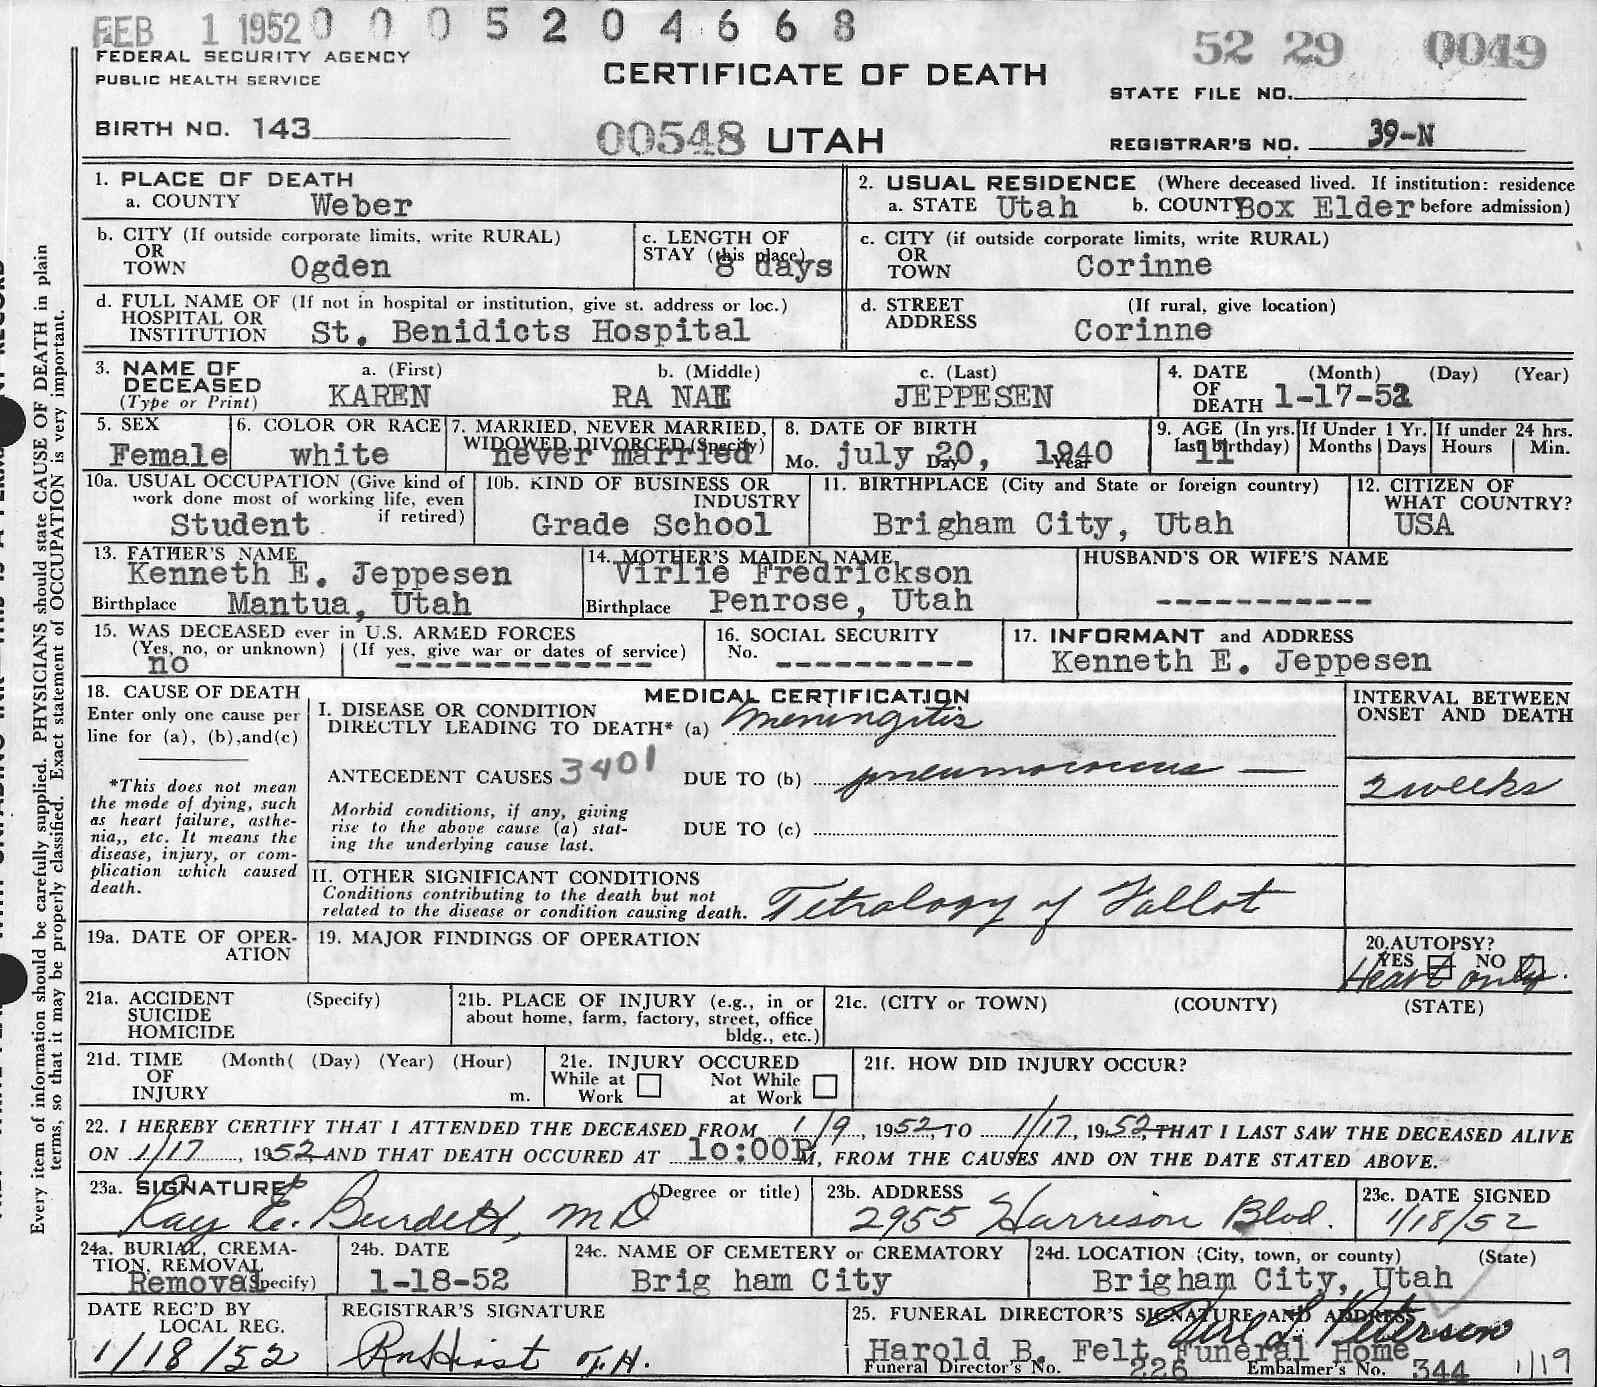 FEB 1 1952 0 0 0 5 2 0 4 6 6 8
52 29 0049
FEDERAL SECURITY AGENCY
PUBLIC HEALTH SERVICE
CERTIFICATE OF DEATH
STATE FILE NO.
BIRTH NO. 143
00548 UTAH
REGISTRAR'S NO. 39-N
1. PLACE OF DEATH
a. COUNTY Weber
2. USUAL RESIDENCE (Where deceased lived. If institution: residence
a. STATE Utah b. COUNTY Box Elder before admission)
b. CITY (If outside corporate limits, write RURAL)
OR
TOWN Ogden
c. LENGTH OF
STAY (this place) 8 days
c. CITY (if outside corporate limits, write RURAL)
OR
TOWN Corinne
d. FULL NAME OF (If not in hospital or institution, give st. address or loc.)
HOSPITAL OR
INSTITUTION St. Benidicts Hospital
d. STREET (If rural, give location)
ADDRESS Corinne
3. NAME OF DECEASED
(Type or Print)
a. (First) KAREN
b. (Middle) RA NAE
c. (Last) JEPPESEN
4. DATE (Month) (Day) (Year)
OF
DEATH 1-17-52
5. SEX
Female
6. COLOR OR RACE
white
7. MARRIED, NEVER MARRIED,
WIDOWED, DIVORCED (Specify)
never married
8. DATE OF BIRTH
Mo. july Day 20, Year 1940
9. AGE (In yrs. last birthday) 11
If Under 1 Yr.
Months Days
If under 24 hrs.
Hours Min.
10a. USUAL OCCUPATION (Give kind of
work done most of working life, even
if retired)
Student
10b. KIND OF BUSINESS OR
INDUSTRY
Grade School
11. BIRTHPLACE (City and State or foreign country)
Brigham City, Utah
12. CITIZEN OF
WHAT COUNTRY?
USA
13. FATHER'S NAME
Kenneth E. Jeppesen
Birthplace Mantua, Utah
14. MOTHER'S MAIDEN NAME
Virlie Fredrickson
Birthplace Penrose, Utah
HUSBAND'S OR WIFE'S NAME
------------
15. WAS DECEASED ever in U.S. ARMED FORCES
(Yes, no, or unknown) (If yes, give war or dates of service)
no -------------
16. SOCIAL SECURITY
No. ----------
17. INFORMANT and ADDRESS
Kenneth E. Jeppesen
18. CAUSE OF DEATH
Enter only one cause per
line for (a), (b),and(c)
*This does not mean
the mode of dying, such
as heart failure, asthe-
nia,, etc. It means the
disease, injury, or com-
plication which caused
death.
MEDICAL CERTIFICATION
I. DISEASE OR CONDITION
DIRECTLY LEADING TO DEATH* (a) Meningitis
ANTECEDENT CAUSES 3401 DUE TO (b) pneumococcus —
Morbid conditions, if any, giving
rise to the above cause (a) stat-
ing the underlying cause last.
DUE TO (c)
INTERVAL BETWEEN
ONSET AND DEATH
2 weeks
II. OTHER SIGNIFICANT CONDITIONS
Conditions contributing to the death but not
related to the disease or condition causing death. Tetralogy of Fallot
19a. DATE OF OPER-
ATION
19. MAJOR FINDINGS OF OPERATION
20. AUTOPSY?
YES NO
Heart only.
21a. ACCIDENT (Specify)
SUICIDE
HOMICIDE
21b. PLACE OF INJURY (e.g., in or
about home, farm, factory, street, office
bldg., etc.)
21c. (CITY or TOWN) (COUNTY) (STATE)
21d. TIME (Month( (Day) (Year) (Hour)
OF
INJURY m.
21e. INJURY OCCURED
While at Work
Not While at Work
21f. HOW DID INJURY OCCUR?
22. I HEREBY CERTIFY THAT I ATTENDED THE DECEASED FROM 1/9, 1952, TO 1/17, 1952, THAT I LAST SAW THE DECEASED ALIVE
ON 1/17, 1952, AND THAT DEATH OCCURED AT 1o:00P M, FROM THE CAUSES AND ON THE DATE STATED ABOVE.
23a. SIGNATURE (Degree or title)
Ray E. Burdett, MD
23b. ADDRESS
2955 Harrison Blvd.
23c. DATE SIGNED
1/18/52
24a. BURIAL, CREMA-
TION, REMOVAL
(Specify)
Removal
24b. DATE
1-18-52
24c. NAME OF CEMETERY or CREMATORY
Brig ham City
24d. LOCATION (City, town, or county) (State)
Brigham City, Utah
DATE REC'D BY
LOCAL REG.
1/18/52
REGISTRAR'S SIGNATURE
25. FUNERAL DIRECTOR'S SIGNATURE AND ADDRESS
Petersen
Harold B. Felt Funeral Home
Funeral Director's No. 226 Embalmer's No. 344 1/19
Every item of information should be carefully supplied. PHYSICIANS should state CAUSE OF DEATH in plain
terms, so that it may be properly classified. Exact statement of OCCUPATION is very important.